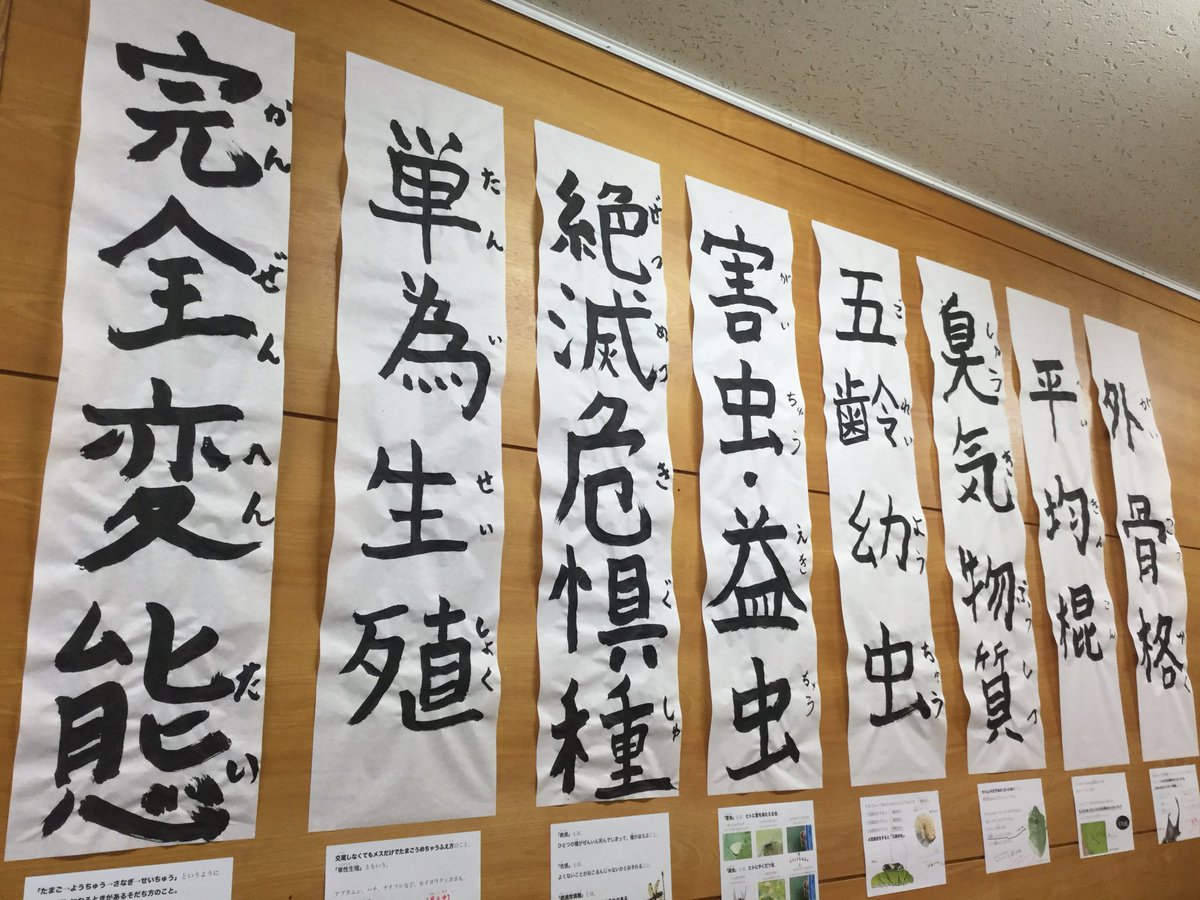 完全変態
かんぜんへんたい
単為生殖
たんいせいしょく
絶滅危惧種
ぜつめつきぐしゅ
害虫・益虫
がいちゅうえきちゅう
五齢幼虫
ごれいようちゅう
臭気物質
しゅうきぶっしつ
平均棍
へいきんこん
外骨格
がいこっかく
「たまご→ようちゅう→さなぎ→せいちゅう」というように
交尾しなくてもメスだけでたまごうめちゃうふえ方のこと。
「単性生殖」ともいう。
アブラムシ、ハチ、ナナフシなど、セイヨウタンポポも。
「絶滅」とは、
ひとつの種がぜんいん死んでしまって、種がほろぶこと。
「危惧」とは、
よくないことがおこるんじゃないかとおそれること
「害虫」とは、ヒトに害をあたえる虫。